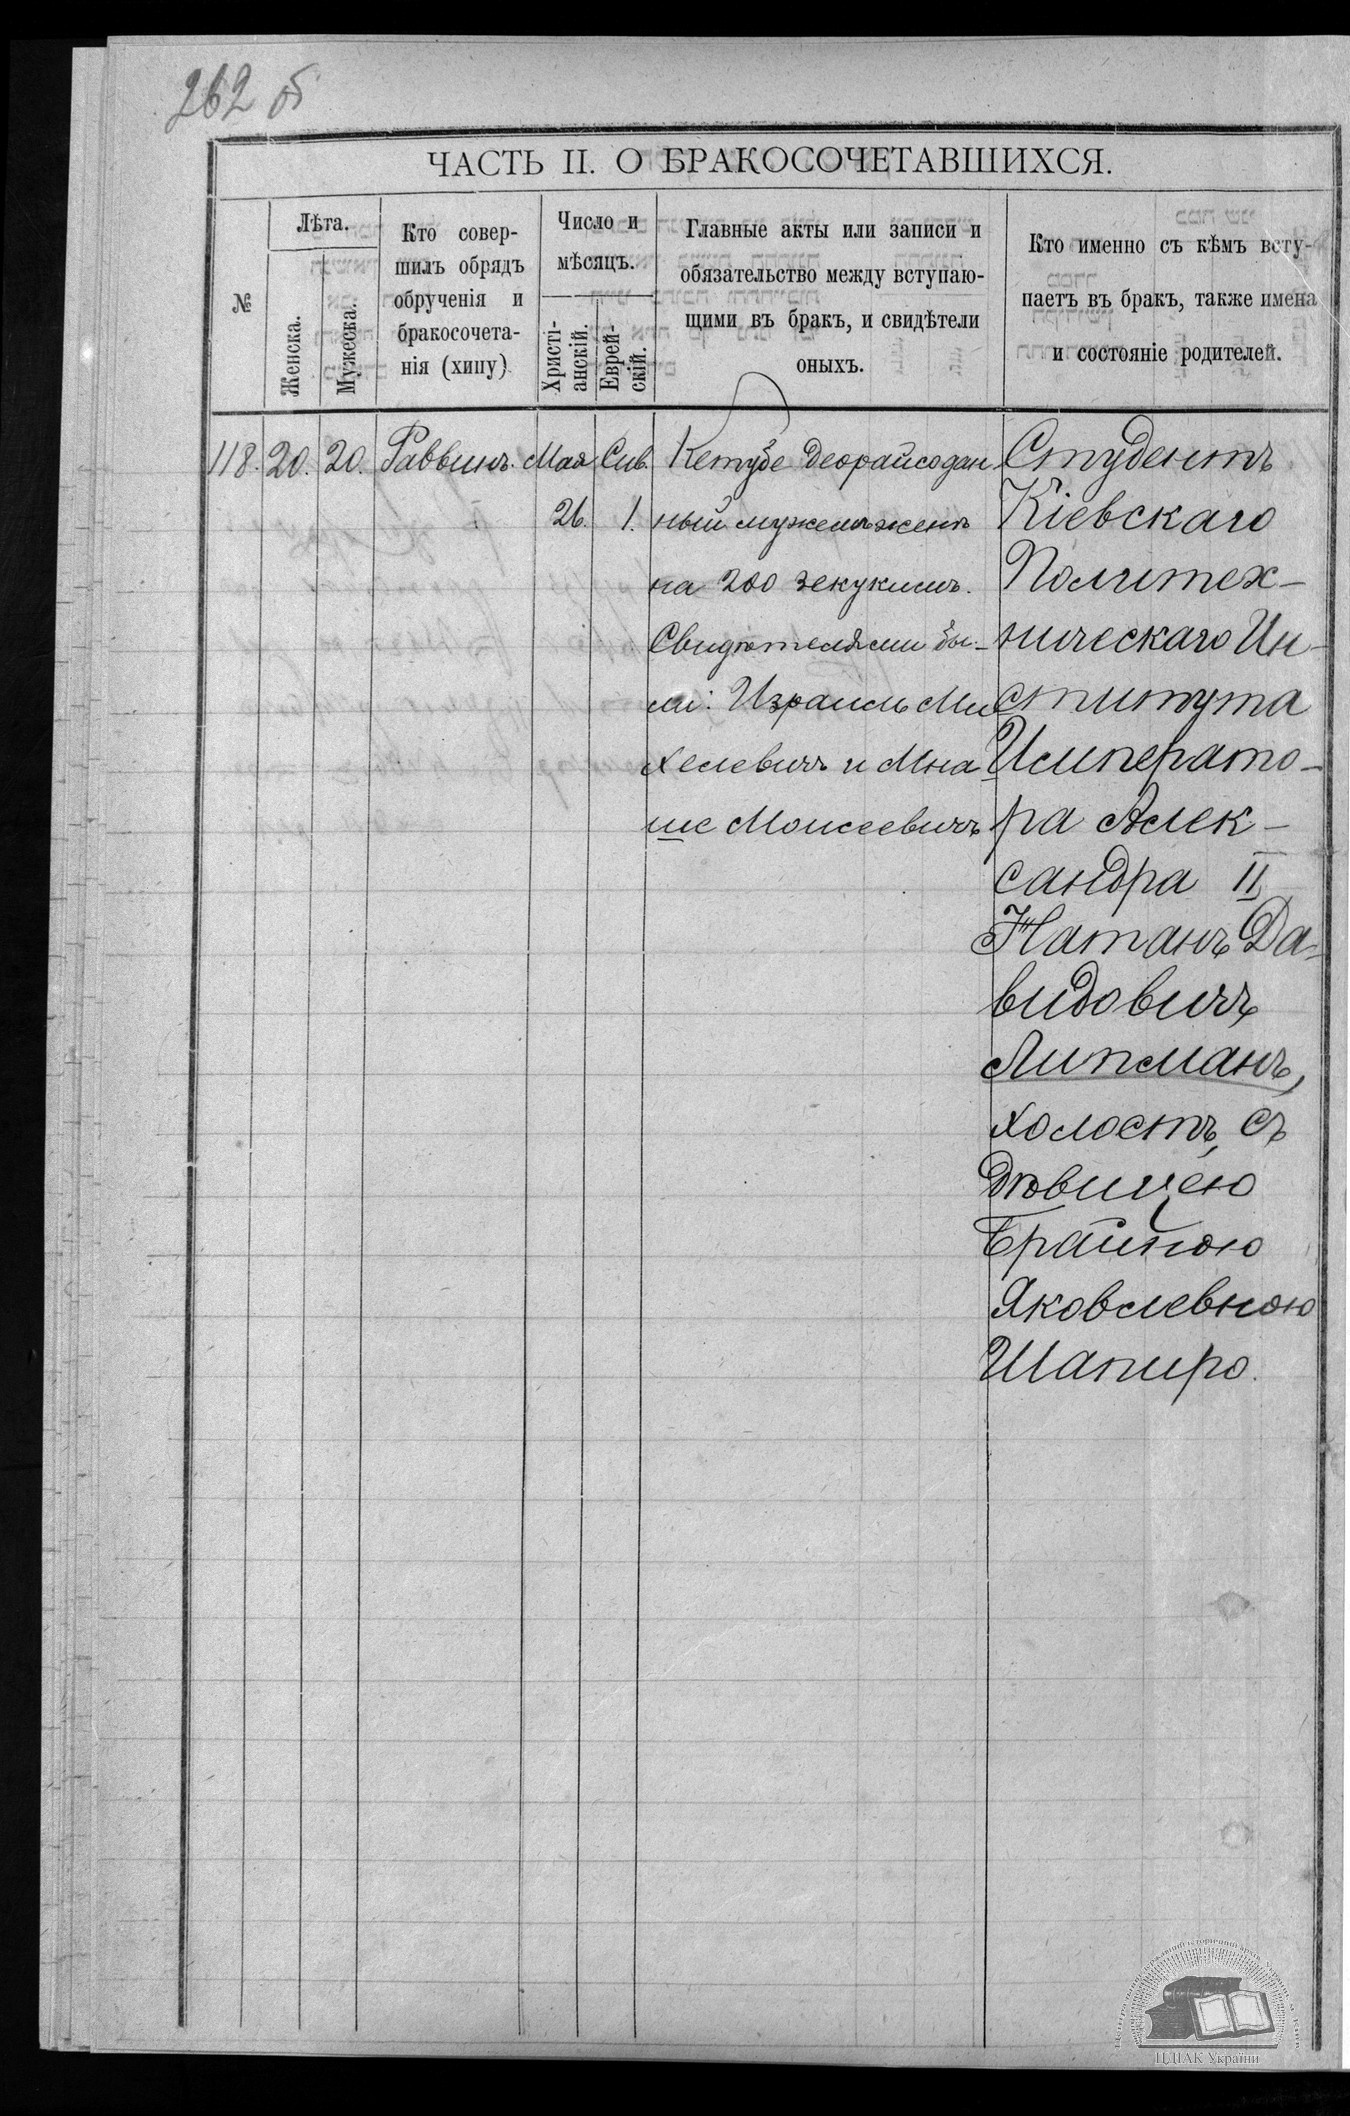 262 об
ЧАСТЬ II. О БРАКОСОЧЕТАВШИХСЯ.
№
Лѣта.
Женска.
Мужеска.
Кто совер-
шилъ обрядъ
обрученія и
бракосочета-
нія (хипу)
Число и
мѣсяцъ.
Христі-
анскій.
Еврей-
скій.
Главные акты или записи и
обязательство между вступаю-
щими въ бракъ, и свидѣтели
оныхъ.
Кто именно съ кѣмъ всту-
паетъ въ бракъ, также имена
и состояніе родителей.
118. 20. 20. Раввинъ. Мая Сив.
26. 1.
Кетубе деорайсо дан
ный мужемъ женѣ
на 200 зекукимъ.
Свидѣтелями бы-
ли: Израиль Ми
хелевичъ и Мна
ше Моисеевичъ
Студентъ
Кіевскаго
Политех-
ническаго Ин-
ститута
Императо-
ра Алек-
сандра II
Натанъ Да-
видовичъ
Липманъ,
холостъ, съ
дѣвицею
Брайною
Яковлевною
Шапиро.
ЦДІАК України